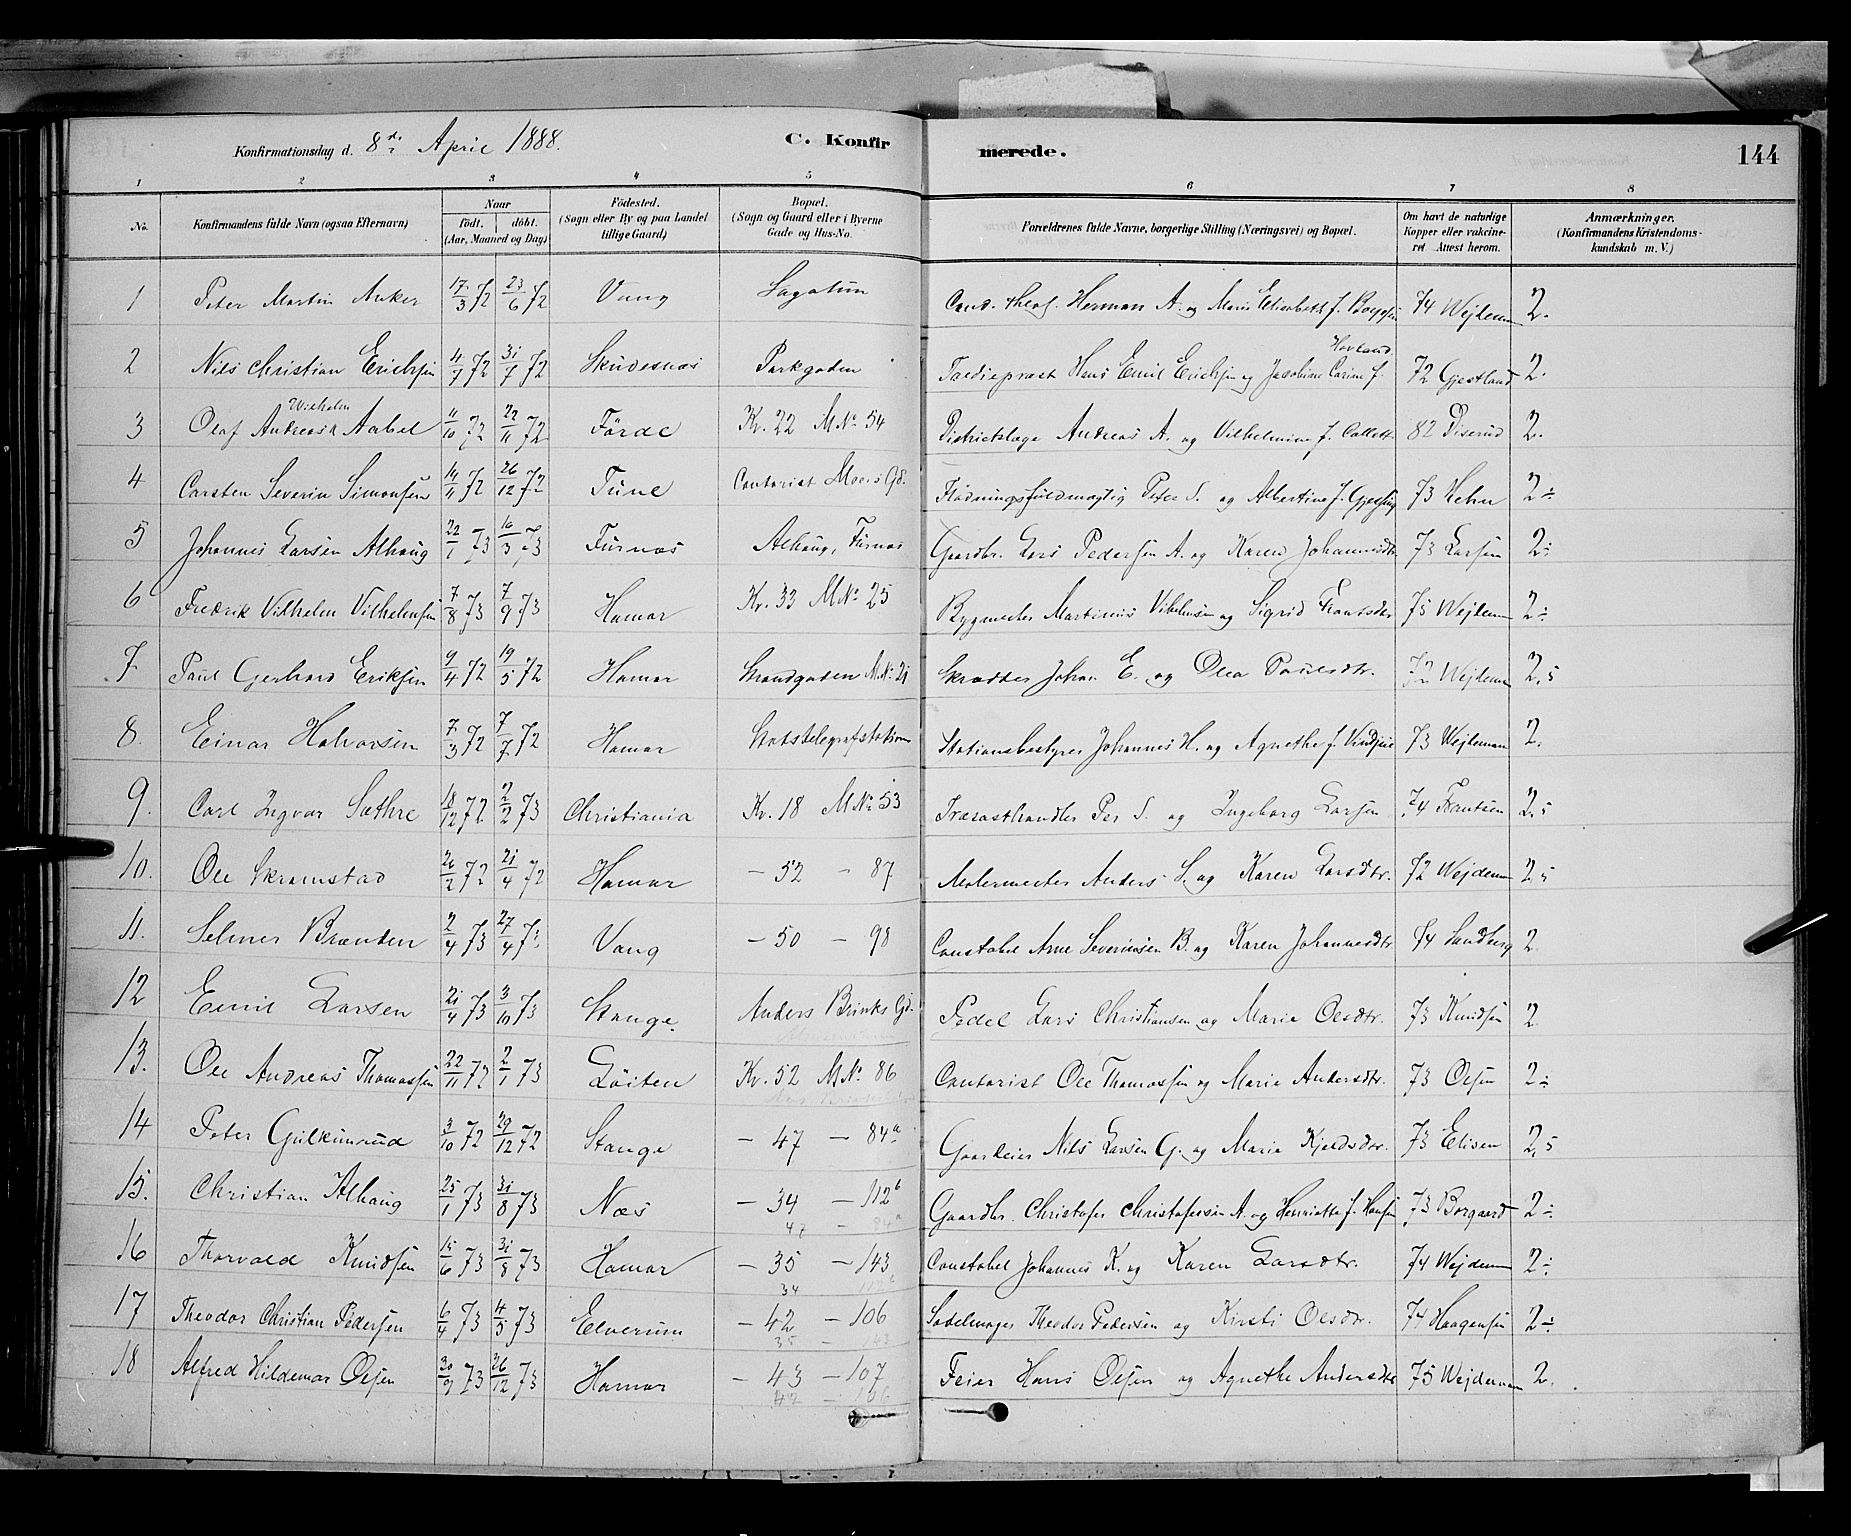 Konfirmationsdag d. 8de April 1888. C. Konfirmerede. 144
1 2 3 4 5 6 7 8
No. Konfirmandens fulde Navn (ogsaa Efternavn) Naar födt. döbt. (Aar, Maaned og Dag) Födested. (Sogn eller By og paa Landet tillige Gaard) Bopæl. (Sogn og Gaard eller i Byerne Gade og Hus-No. Forældrenes fulde Navne, borgerlige Stilling (Næringsvei) og Bopæl. Om havt de naturlige Kopper eller vakcineret Attest herom. Anmærkninger. (Konfirmandens Kristendomskundskab m. V.)
1 Peter Martin Anker 17/3 72 23/6 72 Vang Sagatun Cand. theol. Herman A. og Marie Elisabeth f. 74 Wejdeman 2.
2 Nils Christian Erichsen 4/7 72 31/7 72 Skudesnæs Parkgaden Tredieprest Hans Emil Erichsen og Jacobine Carine f. Hovland 72 Gjestland 2.
3 Olaf Andreas Wilhelm Aabel 11/10 72 22/11 72 Förde Kv. 22 M No 54 Districtslæge Andreas A. og Vilhelmine f. Collett 82 Diserud 2.
4 Carsten Severin Simonsen 14/11 72 26/12 72 Tune Contorist Moe's Gd. Flødningsfuldmægtig Peter S. og Albertine f. 73 Hehn 2÷
5 Johannes Larsen Alhaug 22/1 73 16/3 73 Furnæs Alhaug, Furnæs Gaardbr. Lars Pedersen A. og Karen Johannesdtr. 73 Larsen 2÷
6 Fredrik Vilhelm Vilhelmsen 7/8 73 7/9 73 Hamar Kv. 33 M No 25 Bygmester Martinius Vilhelmsen og Sigrid Frantsdtr 75 Wejdeman 2÷
7 Paul Gerhard Eriksen 9/4 72 19/5 72 Hamar Strandgaden M No 21 Skrædder Johan E. og Olea Paulsdtr. 72 Wejdeman 2,5
8. Einar Halvorsen 7/3 72 7/7 72 Hamar Statstelegrafstationen Stationsbestyrer Johannes H. og Agnethe f. Vindju 73 Wejdeman 2.
9. Carl Ingvar Sæthre 18/12 72 2/2 73 Christiania Kv. 18 M No 53 Trælasthandler Per S. og Ingeborg Larsen 74 Frantsen 2,5
10. Ole Skramstad 26/2 72 21/4 72 Hamar - 52 - 87 Malermester Anders S. og Karen Larsdtr. 72 Wejdeman 2,5
11. Selmer Brænden 2/4 73 27/4 73 Vang - 50 - 98 Constabel Arne Severinsen B. og Karen Johannesdtr 74 Sandberg 2
12 Emil Larsen 21/4 73 3/10 73 Stange Anders Brinks Gd. Pedel Lars Christiansen og Marie Olsdtr. 73 Knudsen 2
13. Ole Andreas Thomassen 22/11 72 2/1 73 Löiten Kv. 52 M No 86 Contorist Ole Thomassen og Marie Andersdtr. 73 Olsen 2÷
14 Peter Gulkunrud 3/10 72 29/12 72 Stange - 47 - 84a Gaardeier Nils Larsen G. og Marie Kjeldsdtr. 73 Elisen 2,5
15. Christian Alhaug 25/1 73 31/8 73 Næs - 34 - 112b Gaardbr. Christofer Christofersen A. og Henriette f. Hansen 73 Borgaard 2÷
47 - 84a
16 Thorvald Knudsen 15/6 73 31/8 73 Hamar - 35 - 143 Constabel Johannes K. og Karen Larsdtr. 74 Wejdeman 2÷
34 112b
17 Theodor Christian Pedersen 6/4 73 4/5 73 Elverum - 42 - 106 Sadelmager Theodor Pedersen og Kirsti Olsdtr. 74 Haagensen 2÷
35 - 143
18 Alfred Hildemar Olsen 30/9 73 26/12 73 Hamar - 43 - 107 Feier Hans Olsen og Agnethe Andersdtr 75 Wejdeman 2.
42 - 106